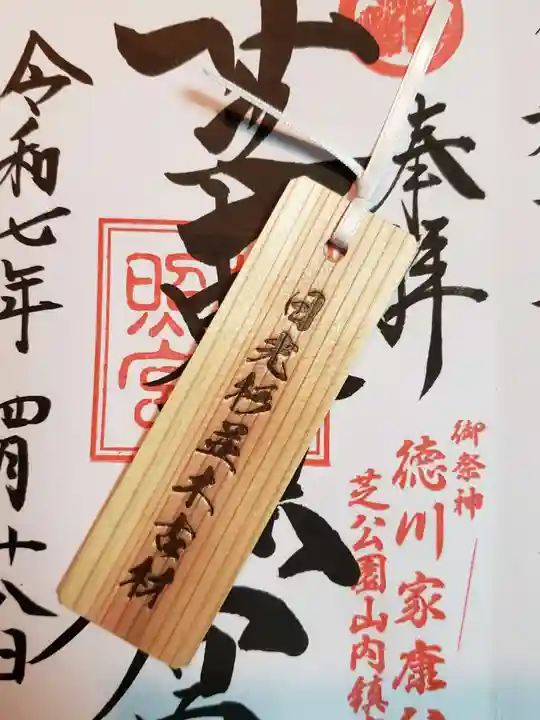 奉拝
御祭神
徳川家康
芝公園山内鎮
芝東照宮
照宮
令和七年 四月十八日
日光杉並木古材